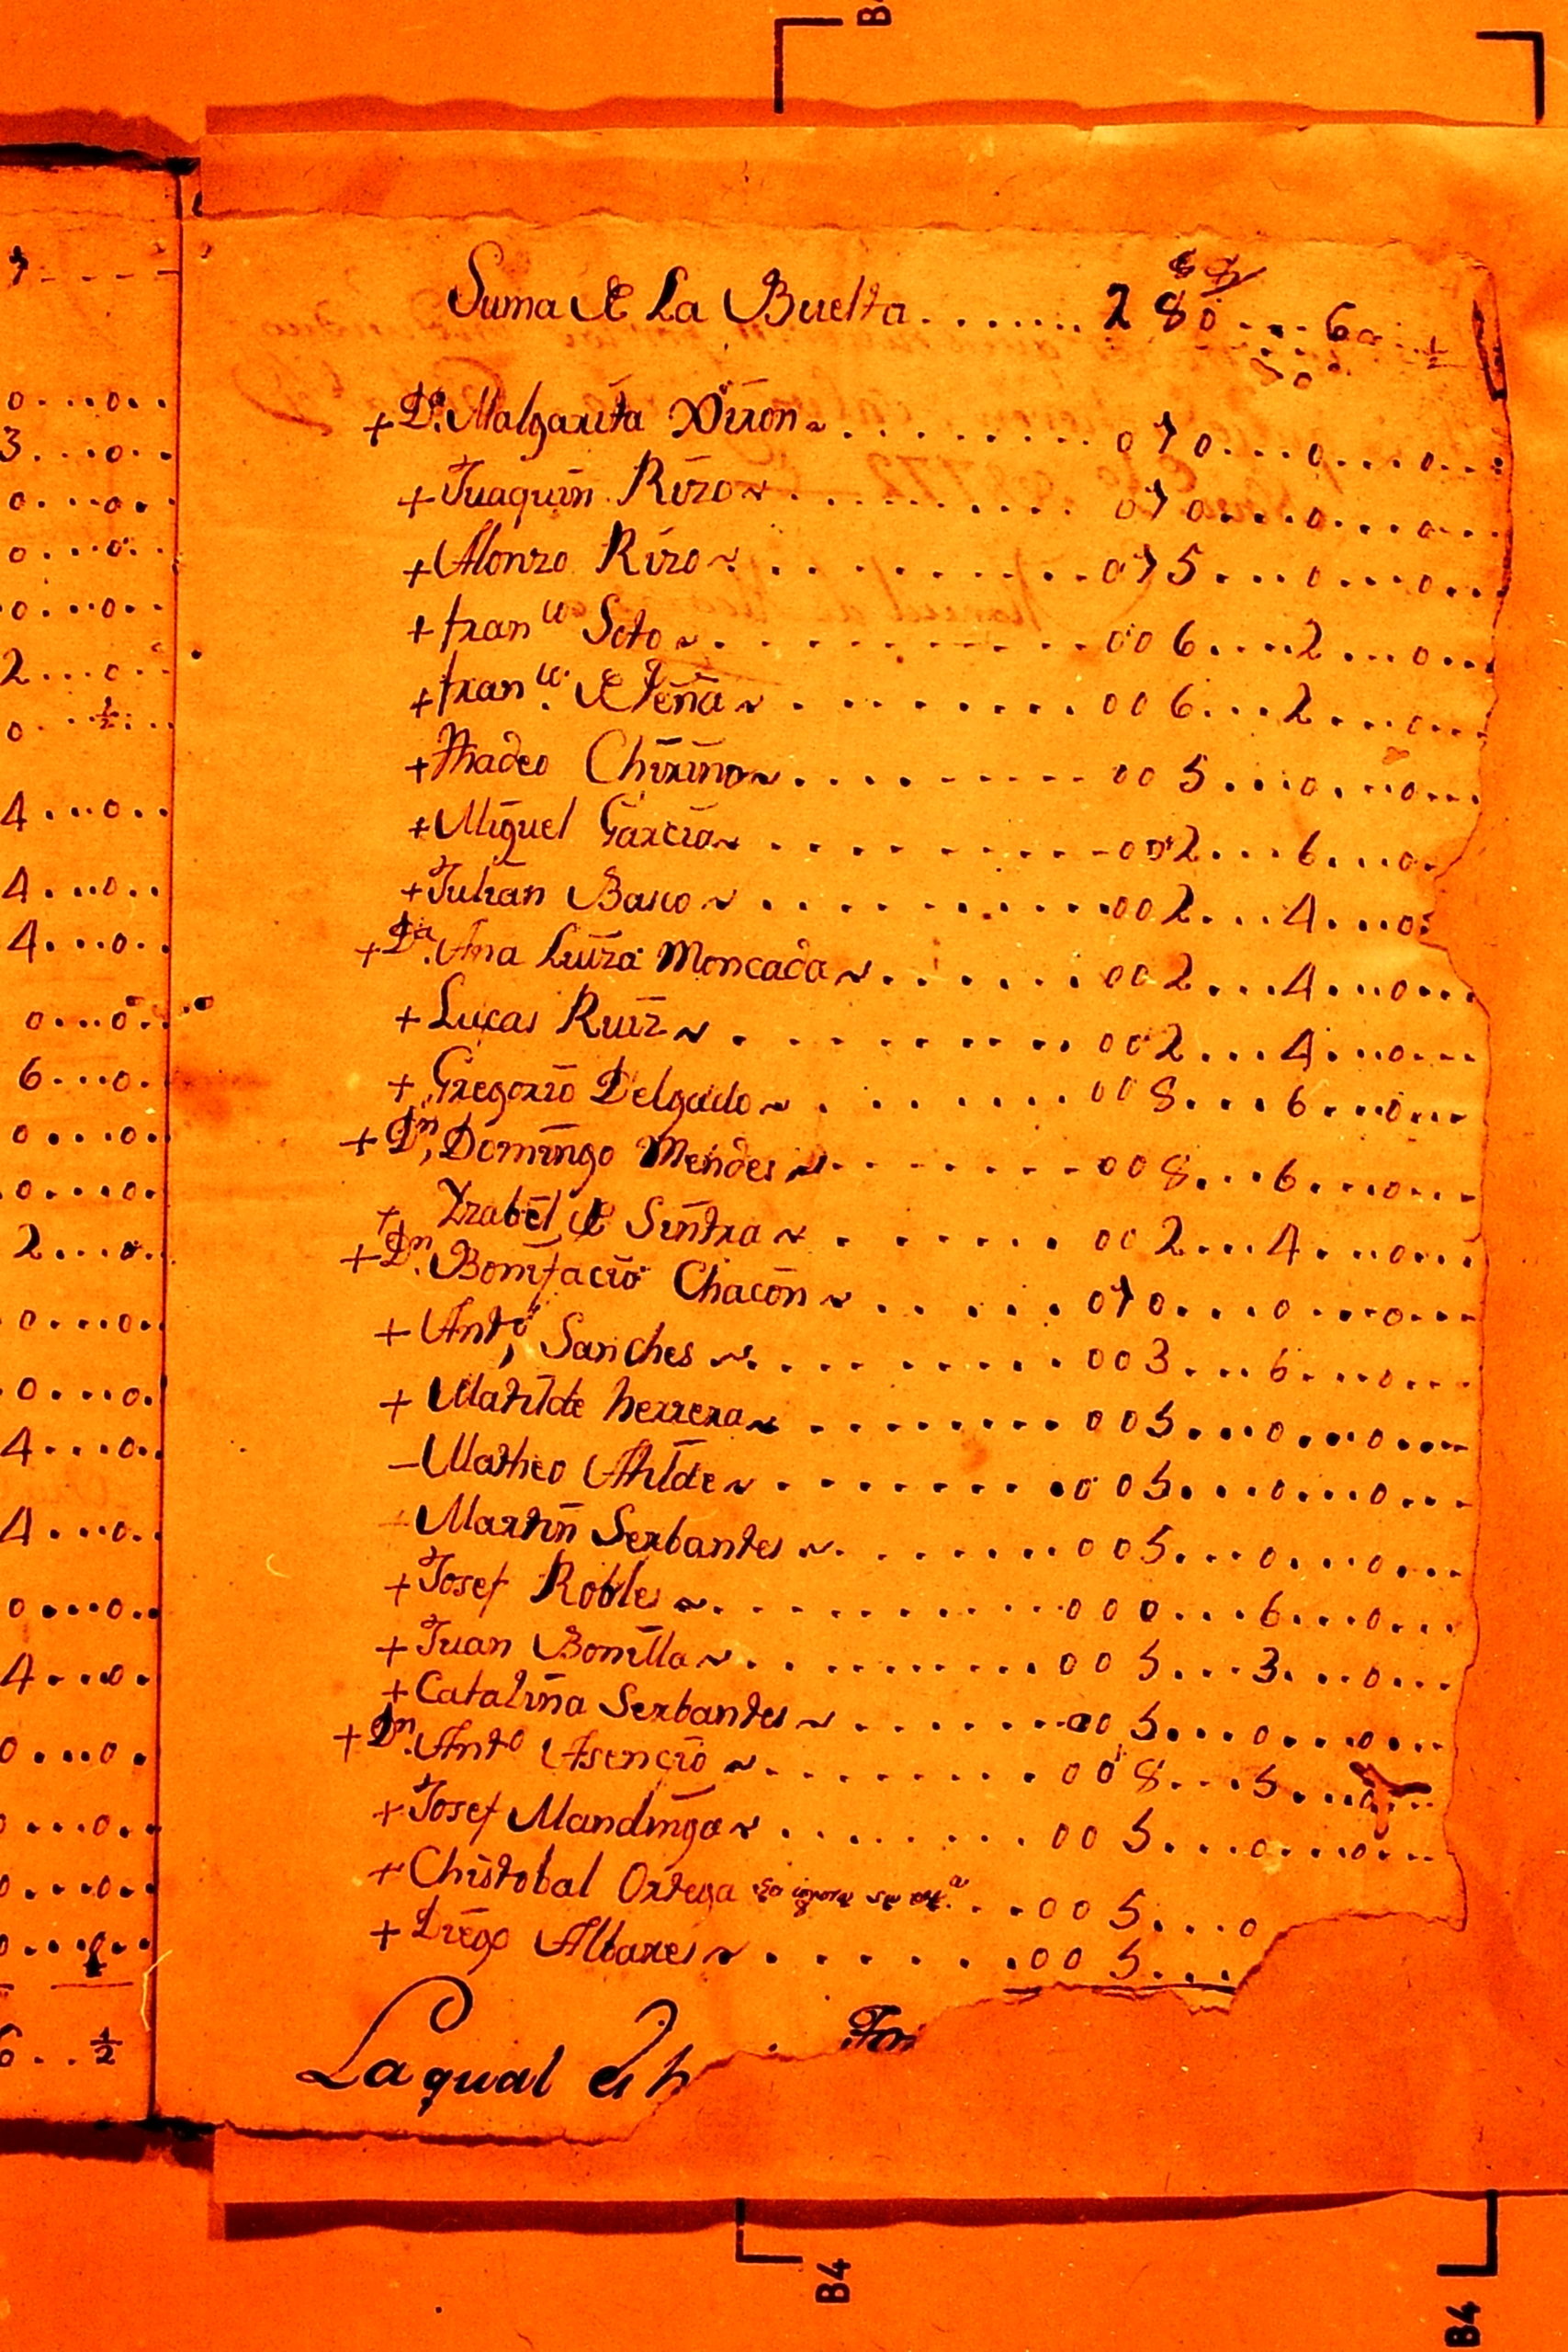 Suma de La Buelta . . . . . . . . 280 . . . 6 . . ½
+ Da. Malgarita Xiron ~ . . . . . . . . . 070 . . . 0 . . . 0 . . .
+ Juaquin Rizo ~ . . . . . . . . . 070 . . . 0 . . . 0 . . .
+ Alonzo Rizo ~ . . . . . . . . . 075 . . . 0 . . . 0 . . .
+ franco Soto ~ . . . . . . . . . 006 . . . 2 . . . 0 . . .
+ franco. de Peña ~ . . . . . . . . . 006 . . . 2 . . . 0 . . .
+ Thadeo Chirino ~ . . . . . . . . . 005 . . . 0 . . . 0 . . .
+ Miguel Garcia ~ . . . . . . . . . 002 . . . 6 . . . 0 .
+ Julian Basco ~ . . . . . . . . . 002 . . . 4 . . . 0 .
+ Da. Ana Luiza Moncada ~ . . . . . . . 002 . . . 4 . . . 0 . . .
+ Lucas Ruiz ~ . . . . . . . . . 002 . . . 4 . . . 0 . . .
+ Gregorio Delgado ~ . . . . . . . 008 . . . 6 . . . 0 . . .
+ Dn. Domingo Mendes ~ . . . . . . . 008 . . . 6 . . . 0 . . .
+ Yzabel de Sintra ~ . . . . . . 002 . . . 4 . . . 0 . . .
+ Dn. Bonifacio Chacon ~ . . . . . 070 . . . 0 . . . 0 . . .
+ Anto, Sanches ~ . . . . . . . . . 003 . . . 6 . . . 0 . . .
+ Matilde herrera ~ . . . . . . . . 005 . . . 0 . . . 0 . . .
– Matheo Atilde ~ . . . . . . . . . 005 . . . 0 . . . 0 . . .
– Martin Serbantes ~ . . . . . . . . 005 . . . 0 . . . 0 . . .
+ Josef Robles ~ . . . . . . . . . . 000 . . . 6 . . . 0 . . .
+ Juan Bonilla ~ . . . . . . . . . . 005 . . . 3 . . . 0 . . .
+ Catalina Serbantes ~ . . . . . . . 005 . . . 0 . . . 0 . . .
+ Dn. Anto Asencio ~ . . . . . . . . 008 . . . 5 . . . 0 . . .
+ Josef Mandinga ~ . . . . . . . . 005 . . . 0 . . . 0 . . .
+ Christobal Ortega . . . 005 . . . 0
+ Diego Albares ~ . . . . . . 005 . . .
La qual
B4
B4